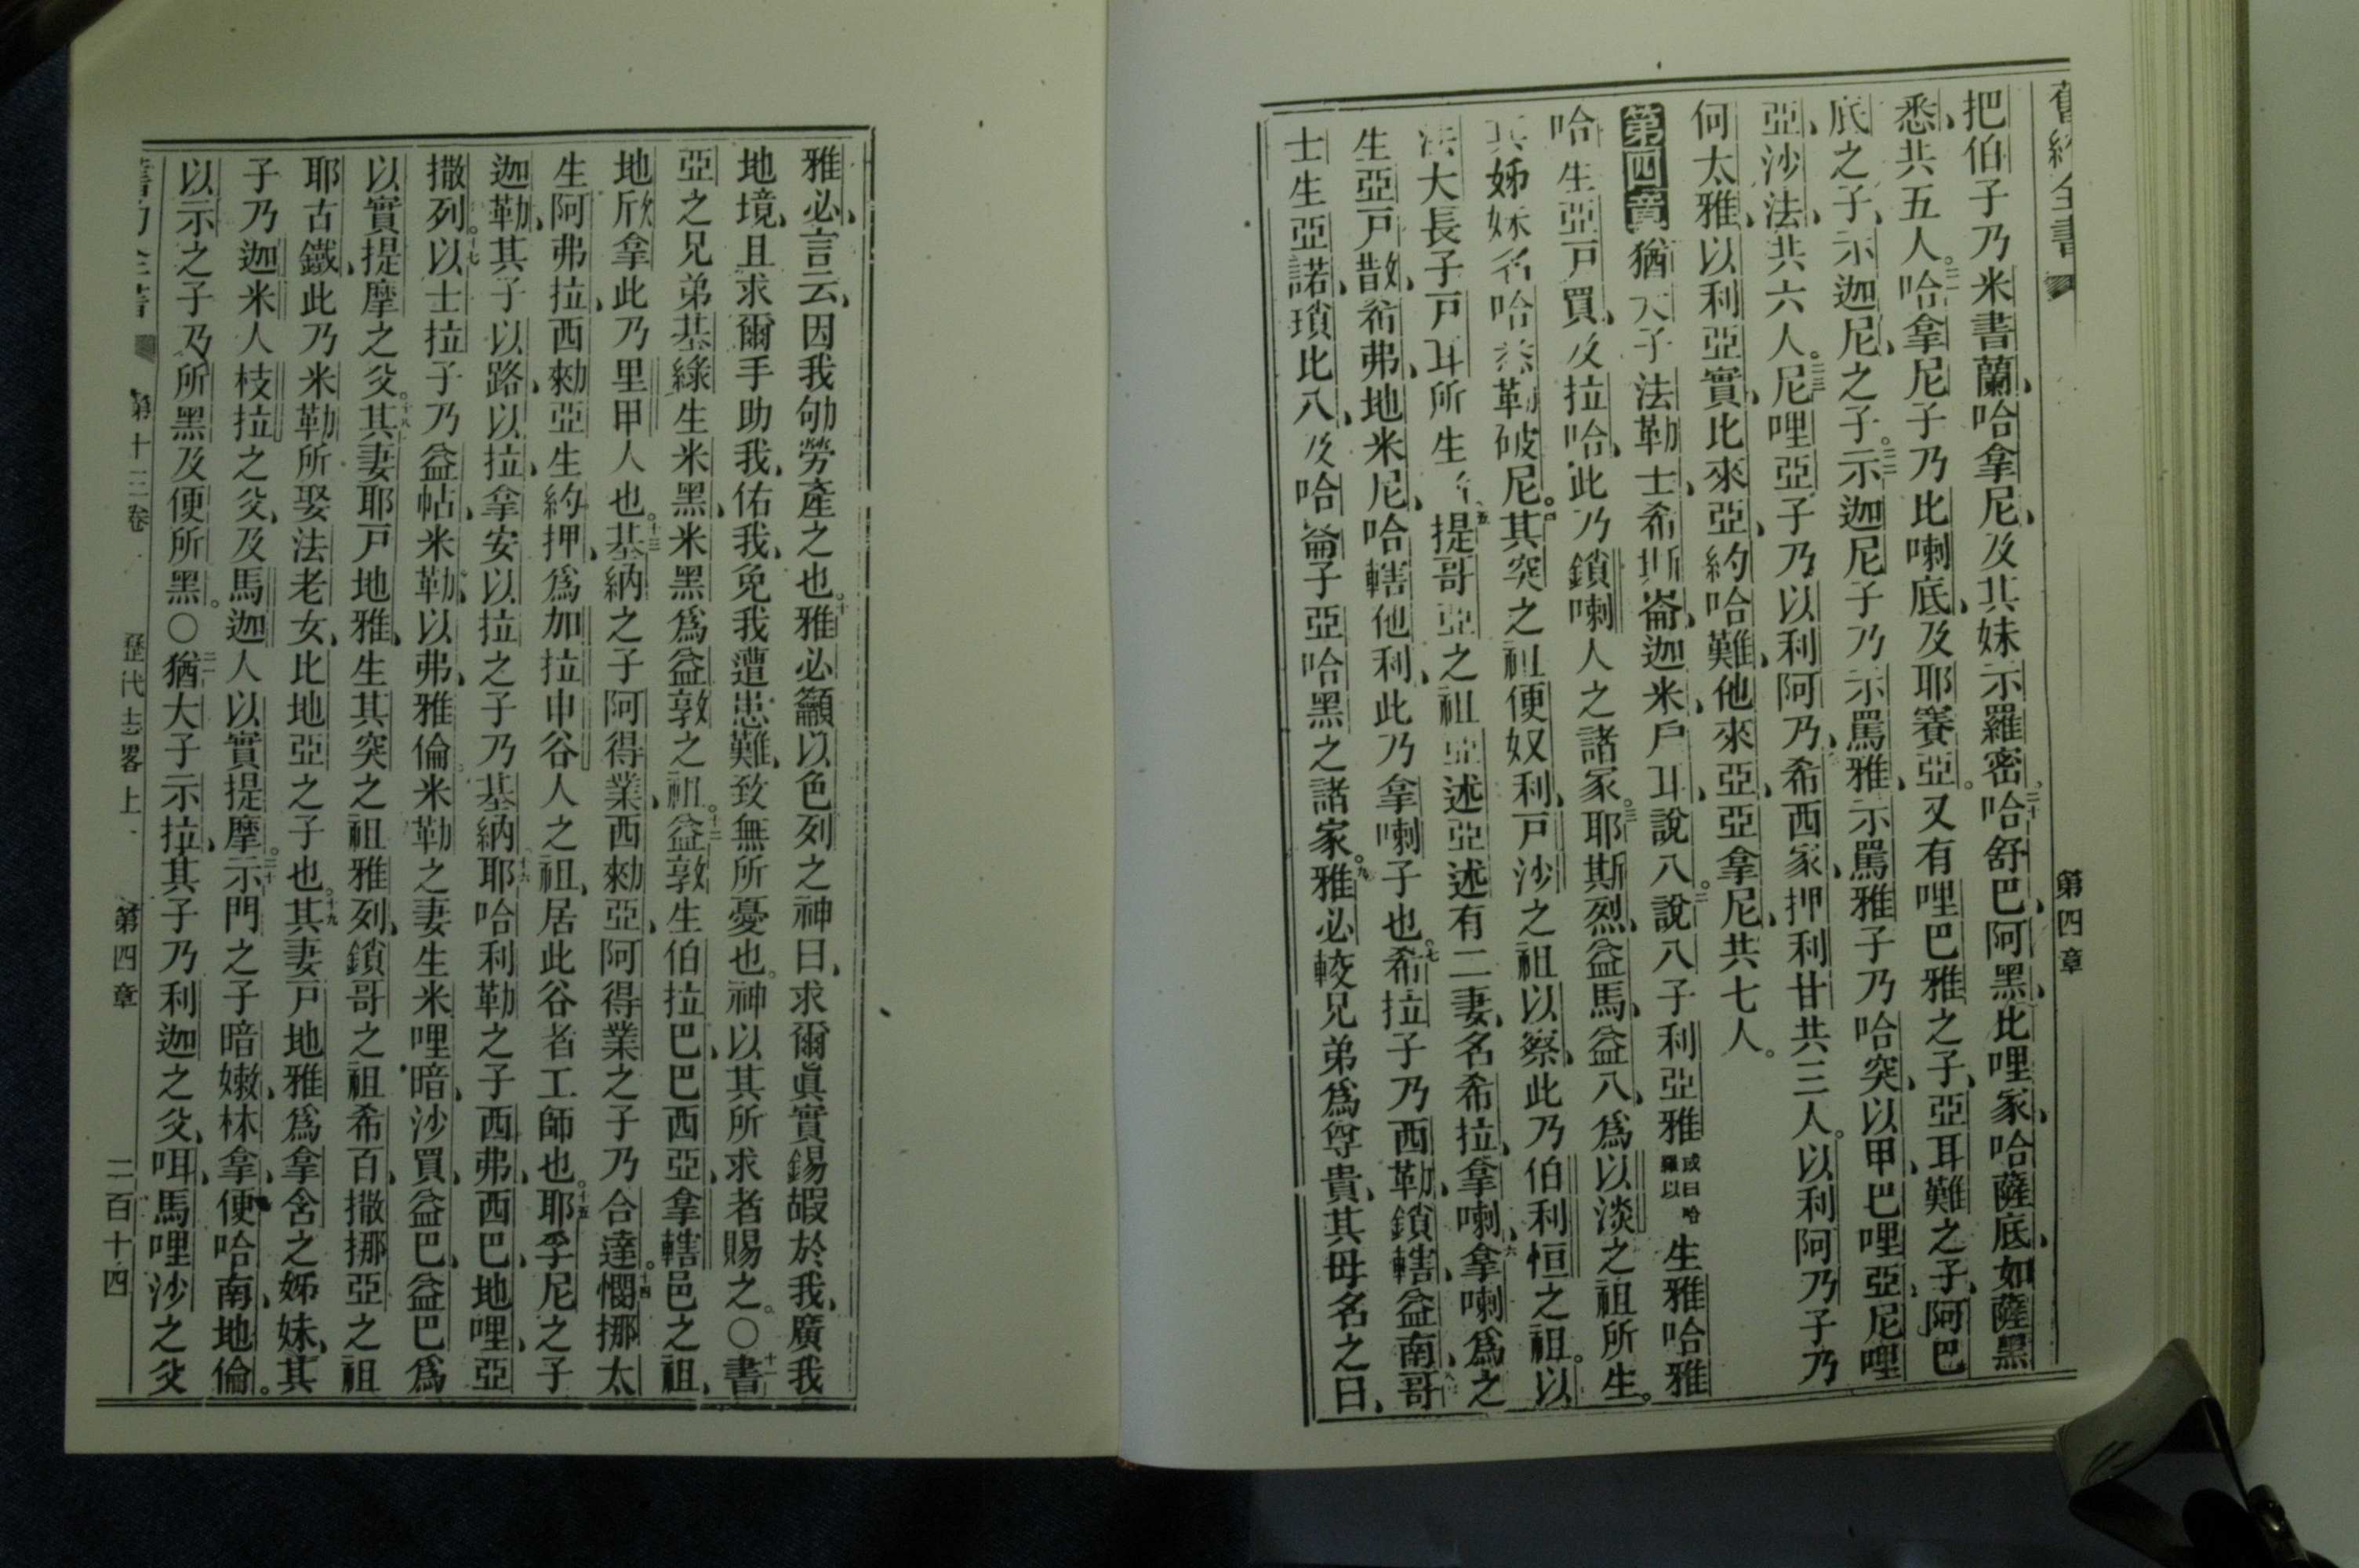 舊約全書
第四章
把伯子乃米書蘭、哈拿尼、及其妹示羅密。二十哈舒巴、阿黑、比哩家、哈薩底、如薩黑
悉、共五人。二一哈拿尼子乃比喇底、及耶賽亞。又有哩巴雅之子、亞耳難之子、阿巴
底之子、示迦尼之子。二二示迦尼子乃示罵雅、示罵雅子乃哈突、以甲、巴哩亞、尼哩
亞、沙法、共六人。二三尼哩亞子乃以利阿乃、希西家、押利甘共三人。以利阿乃子乃
何太雅、以利亞實、比來亞、約哈難、他來亞、亞拿尼、共七人。
第四章 猶大子法勒士、希斯崙、迦米、戶耳、說八。二說八子利亞雅或曰哈羅以生雅哈雅
哈生亞戶買、及拉哈、此乃鎖喇人之諸家。三耶斯烈、益馬、益八、爲以淡之祖所生。
其姊妹名哈悉勒破尼。四其突之祖便奴利、戶沙之祖以察、此乃伯利恒之祖。以
法大長子戶耳所生者、五提哥亞之祖亞述、亞述有二妻、名希拉、拿喇、六拿喇爲之
生亞戶散、希弗、地米尼、哈轄他利、此乃拿喇子也。七希拉子乃西勒、鎖轄、益南、八哥
士生亞諾、瑣比八、及哈崙子亞哈黑之諸家。九雅必較兄弟爲尊貴、其母名之曰、
雅必、言云、因我劬勞產之也。十雅必籲以色列之神曰、求爾眞實錫嘏於我、廣我
地境、且求爾手助我、佑我、免我遭患難、致無所憂也。神以其所求者賜之。〇十一書
亞之兄弟基綠生米黑、米黑爲益敦之祖。十二益敦生伯拉巴、巴西亞、拿轄邑之祖、
地欣拿此乃里甲人也。十三基納之子阿得業、西勑亞、阿得業之子乃合達。十四憫挪太
生阿弗拉、西勑亞生約押、爲加拉申谷人之祖、居此谷者工師也。十五耶孚尼之子
迦勒、其子以路、以拉、拿安、以拉之子乃基納。十六耶哈利勒之子西弗、西巴、地哩、亞
撒列。十七以士拉子乃益帖、米勒、以弗、雅倫、米勒之妻生米哩暗、沙買、益巴、益巴爲
以實提摩之父。十八其妻耶戶地雅、生其突之祖雅列、鎖哥之祖希百、撒挪亞之祖
耶古鐵、此乃米勒所娶法老女、比地亞之子也。十九其妻戶地雅爲拿含之姊妹、其
子乃迦米人枝拉之父、及馬迦人以實提摩。二十示門之子暗嫩、林拿、便哈南、地倫。
以示之子乃所黑及便所黑。〇二一猶大子示拉、其子乃利迦之父、咡、馬哩沙之父
舊約全書 第十三卷 歷代志畧上 第四章 二百十四